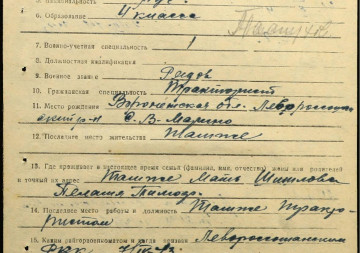 5. Национальность рус.
6. Образование 4 класса
7. Военно-учетная специальность 1
8. Должностная квалификация
9. Военное звание Рядов
10. Гражданская специальность Тракторист
11. Место рождения Воронежская обл. Леворос
ский р-н С. В. Марино
12. Последнее место жительства Там же
13. Где проживает в настоящее время семья (фамилия, имя, отчество) жены или родителей
и точный их адрес Там же Мать Шипилова
Пелагия
14. Последнее место работы и должность Там же Трак
ристом
15. Каким райгорвоенкоматом и когда призван Левороссошанским
РВК